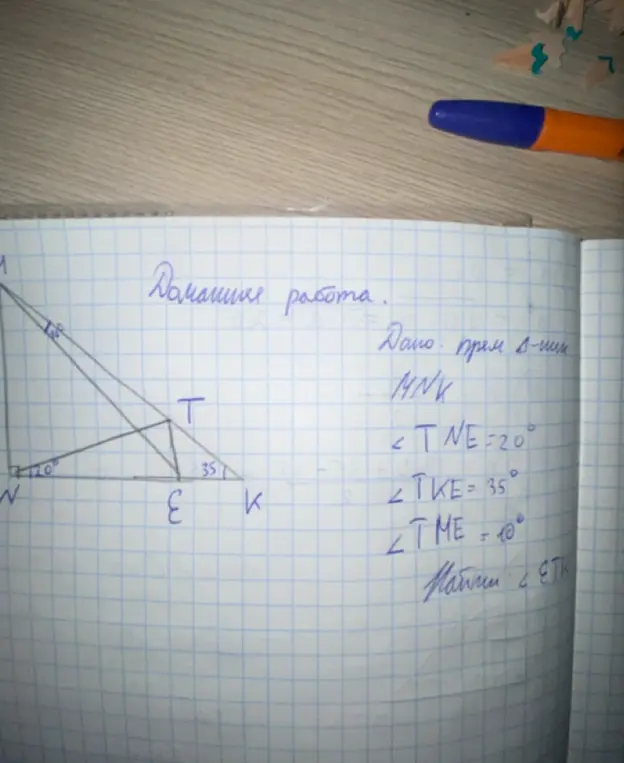 Домашняя работа.
M
10°
T
20°
35°
N
E
K
Дано: прям Δ-ник
MNK
∠TNE=20°
∠TKE=35°
∠TME=10°
Найти ∠ETK